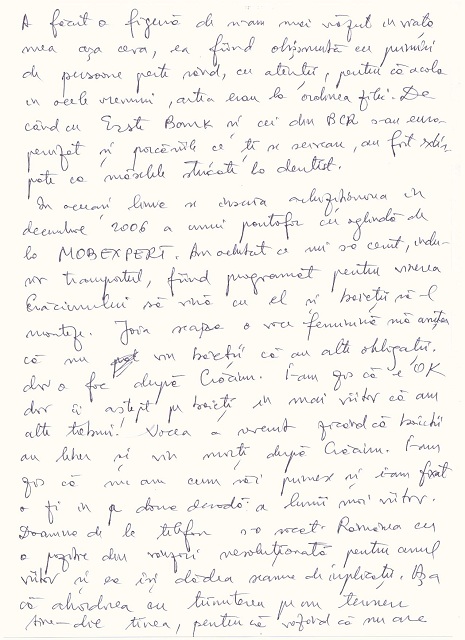 A făcut o figură de n-am mai văzut în viața
mea așa ceva, ea fiind obișnuită cu primiri
de persoane peste rând, cu atenții, pentru că acolo
în acele vremuri, astia erau la ordinea zilei. De
când cu Erste Bank și cei din BCR s-au euro-
penizat și porcăriile ce ți se serveau, au fost extir-
pate ca măselele stricate la dentist.
În aceeași lume se înscrie achiziționarea în
decembrie 2006 a unui pantofar cu oglindă de
la MOBEXPERT. Am achitat ce mi s-a cerut, inclu-
siv transportul, fiind programat pentru vinerea
Crăciunului să vină cu el și băieții să-l
monteze. Joia seara o voce feminină mă anunța
că nu vin băieții că au alte obligații.
dar o fac după Crăciun. I-am zis că e OK
dar îi aștept pe băieți în mai viitor că am
alte treburi. Vocea a revenit zicând că băieții
au liber și vin marți după Crăciun. I-am
zis că nu am cum să-i primesc și i-am fixat
o zi în a doua decadă a lunii mai viitor.
Doamna de la telefon s-a
o pozitie din vânzări nesoluționată pentru anul
viitor și ea își dădea seama de implicații. Așa
că abordarea cu trimiterea pe un termen
sine-die ținea, pentru că văzând că nu are